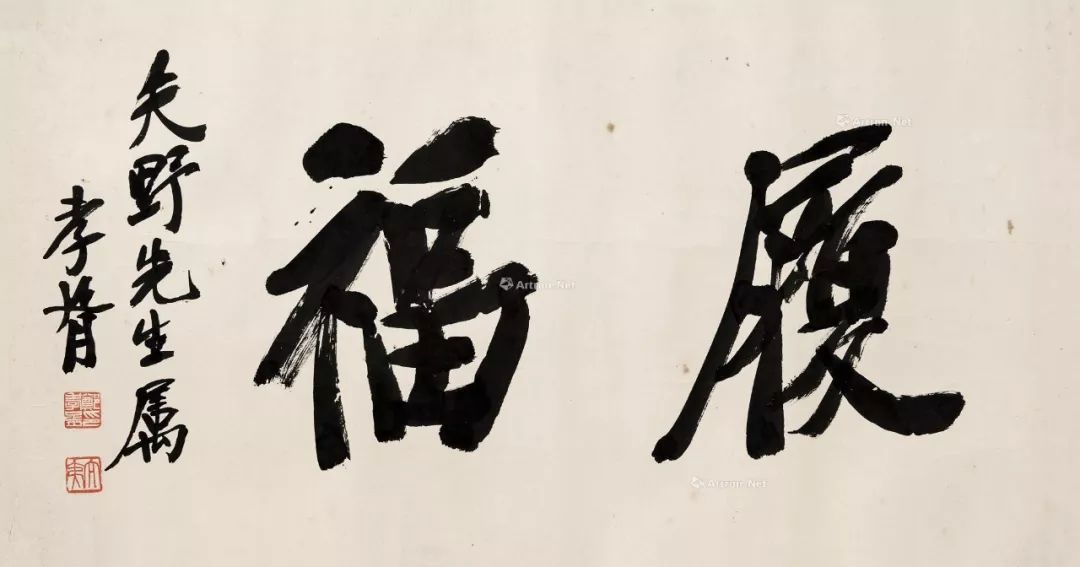 履福
矢野先生属
孝胥
Artron.Net
Artron.Net
Artron.Net